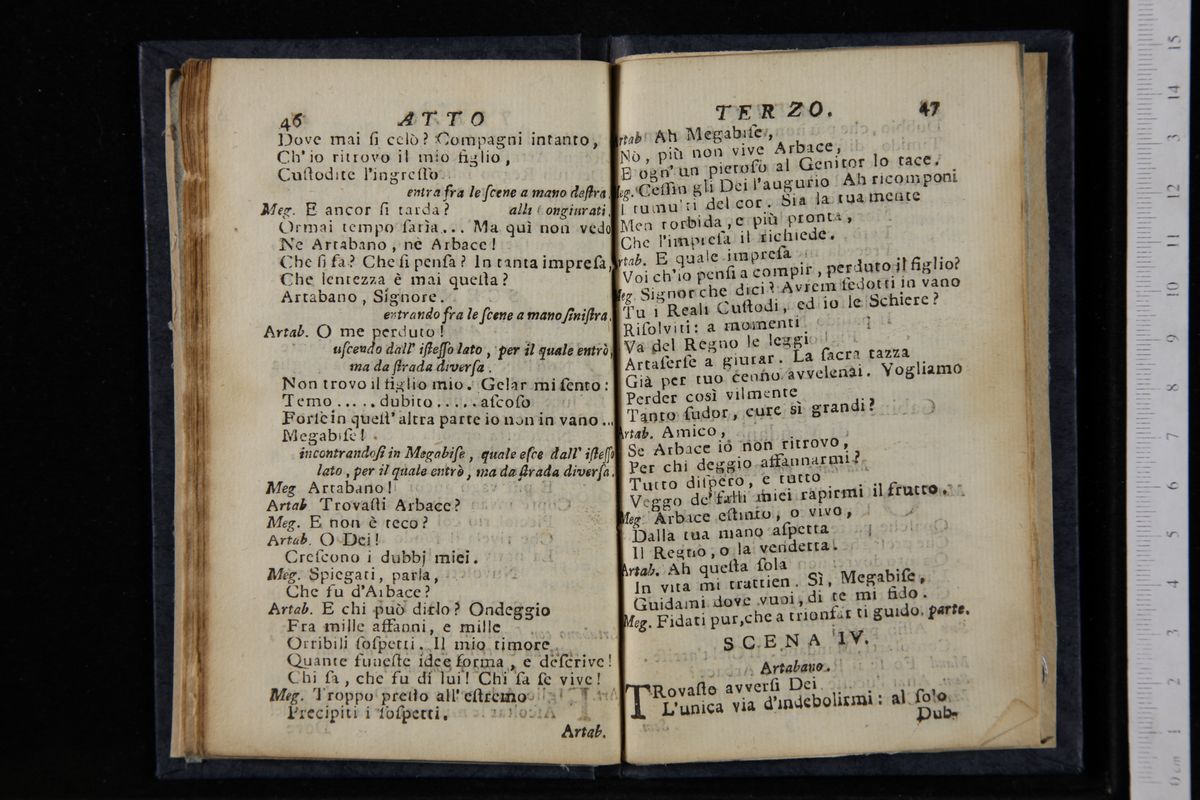 46 ATTO
Dove mai ſi celò? Compagni intanto,
Ch' io ritrovo il mio figlio,
Cuſtodite l'ingreſſo
entra fra le ſcene a mano deſtra.
Meg. E ancor ſi tarda? alli Congiurati.
Ormai tempo ſaria... Ma quì non vedo
Ne Artabano, nè Arbace!
Che ſi fa? Che ſi penſa? In tanta impreſa,
Che lentezza è mai queſta?
Artabano, Signore.
entrando fra le ſcene a mano ſiniſtra.
Artab. O me perduto!
uſcendo dall' iſteſſo lato, per il quale entrò,
ma da ſtrada diverſa.
Non trovo il figlio mio. Gelar mi ſento:
Temo ..... dubito ...... aſcoſo
Forſe in queſt' altra parte io non in vano...
Megabiſe!
incontrandoſi in Megabiſe, quale eſce dall' iſteſſo
lato, per il quale entrò, ma da ſtrada diverſa.
Meg Artabano!
Artab Trovaſti Arbace?
Meg. E non è teco?
Artab. O Dei!
Creſcono i dubbj miei.
Meg. Spiegati, parla,
Che fu d'Arbace?
Artab. E chi può dirlo? Ondeggio
Fra mille affanni, e mille
Orribili ſoſpetti. Il mio timore
Quante funeſte idee forma, e deſcrive!
Chi ſa, che fu di lui! Chi ſa ſe vive!
Meg. Troppo preſto all' eſtremo
Precipiti i ſoſpetti.
Artab.
TERZO. 47
Artab Ah Megabiſe,
Nò, più non vive Arbace,
E ogn' un pietoſo al Genitor lo tace.
Meg. Ceſſin gli Dei l'augurio Ah ricomponi
I tumulti del cor. Sia la tua mente
Men torbida, e più pronta,
Che l'impreſa il richiede.
Artab. E quale impreſa
Voi ch'io penſi a compir, perduto il figlio?
Meg Signor che dici? Avrem ſedotti in vano
Tu i Reali Cuſtodi, ed io le Schiere?
Riſolviti: a momenti
Va del Regno le leggi
Artaſerſe a giurar. La ſacra tazza
Già per tuo cenno avvelenai. Vogliamo
Perder così vilmente
Tanto ſudor, cure sì grandi?
Artab. Amico,
Se Arbace io non ritrovo,
Per chi deggio affannarmi?
Tutto diſpero, e tutto
Veggo de' falli miei rapirmi il frutto.
Meg. Arbace eſtinto, o vivo,
Dalla tua mano aſpetta
Il Regno, o la vendetta.
Artab. Ah queſta ſola
In vita mi trattien. Sì, Megabiſe,
Guidami dove vuoi, di te mi fido.
Meg. Fidati pur, che a trionfar ti guido. parte.
SCENA IV.
Artabano.
TRovaſto avverſi Dei
L'unica via d'indebolirmi: al ſolo
Dub-
15
14
13
12
11
10
9
8
7
6
5
4
3
2
1
0 cm